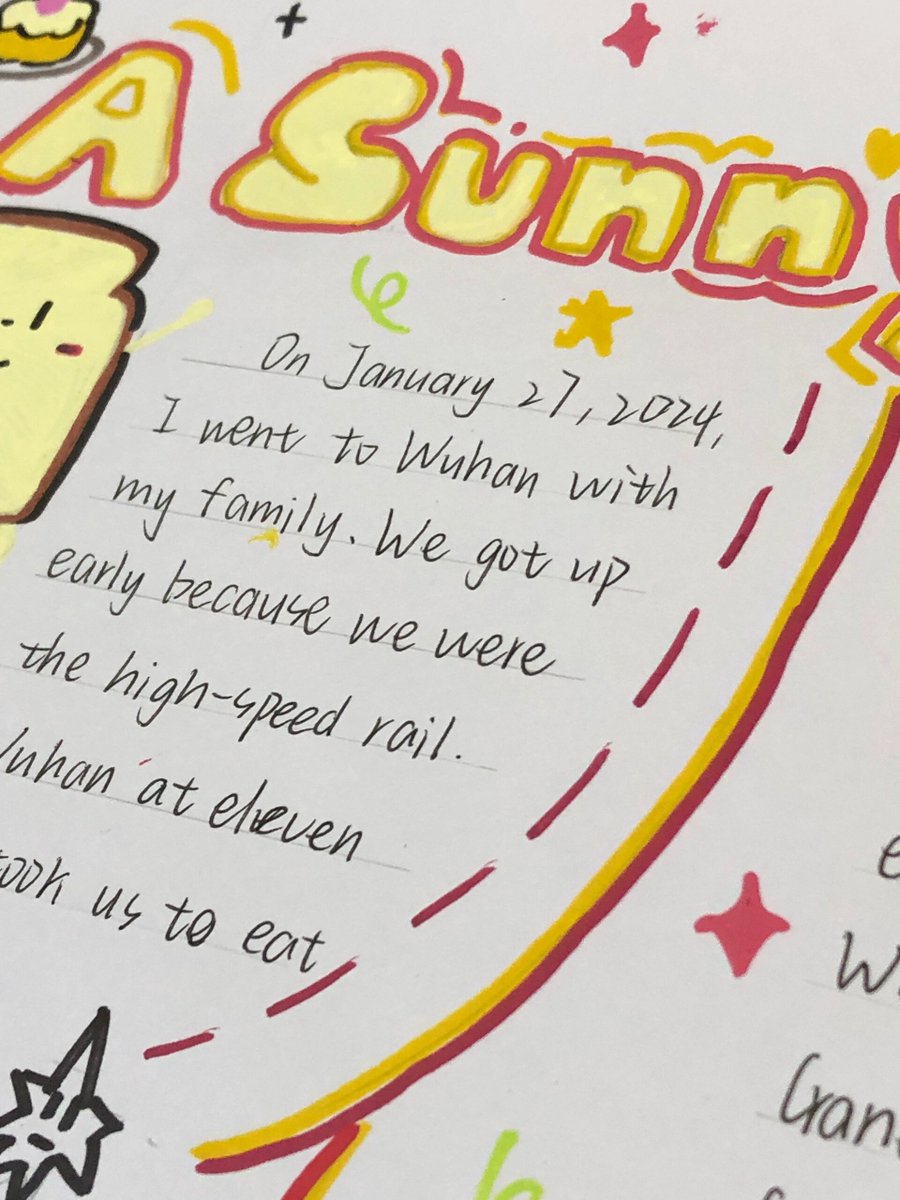 A Sunn
On January 27, 2024,
I went to Wuhan with
my family. We got up
early because we were
the high-speed rail.
at eleven
took us to eat